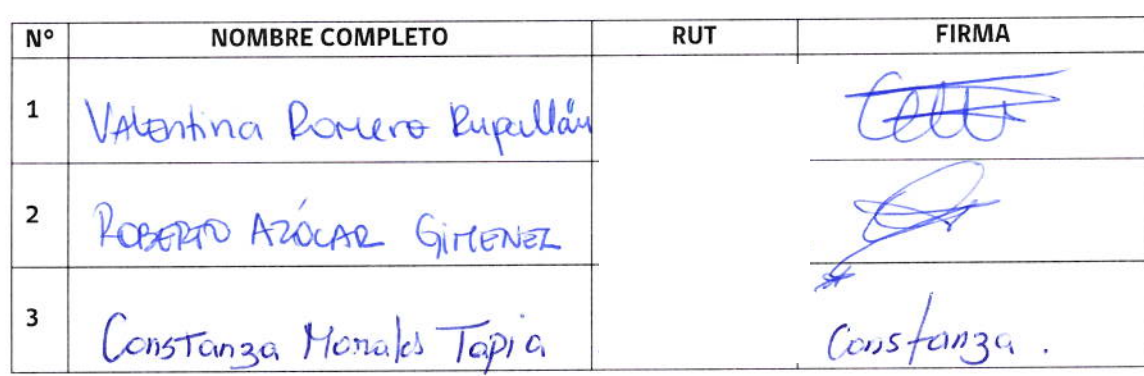 Nº NOMBRE COMPLETO RUT FIRMA
1 Valentina Romero Rupallán
2 ROBERTO AZÓCAR GIMENEZ
3 Constanza Morales Tapia Constanza.